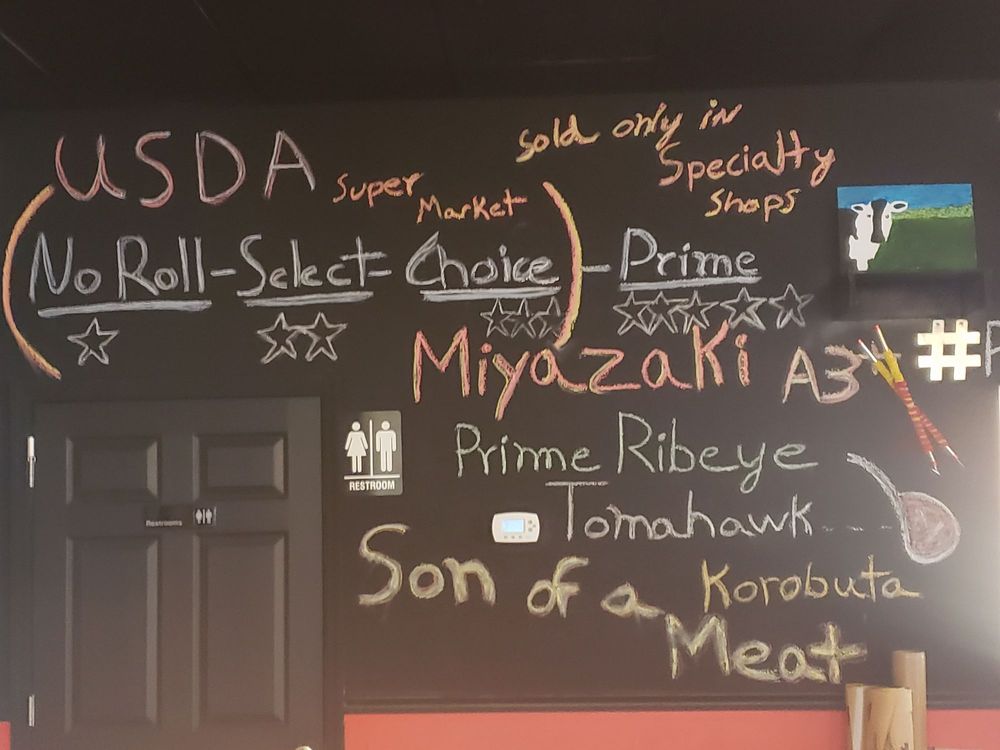 USDA
Super Market
Sold only in
Specialty
Shops
(No Roll-Select-Choice)-Prime
Miyazaki A3
#
Prime Ribeye
RESTROOM
Tomahawk
Restrooms
Son of a
Korobuta
Meat